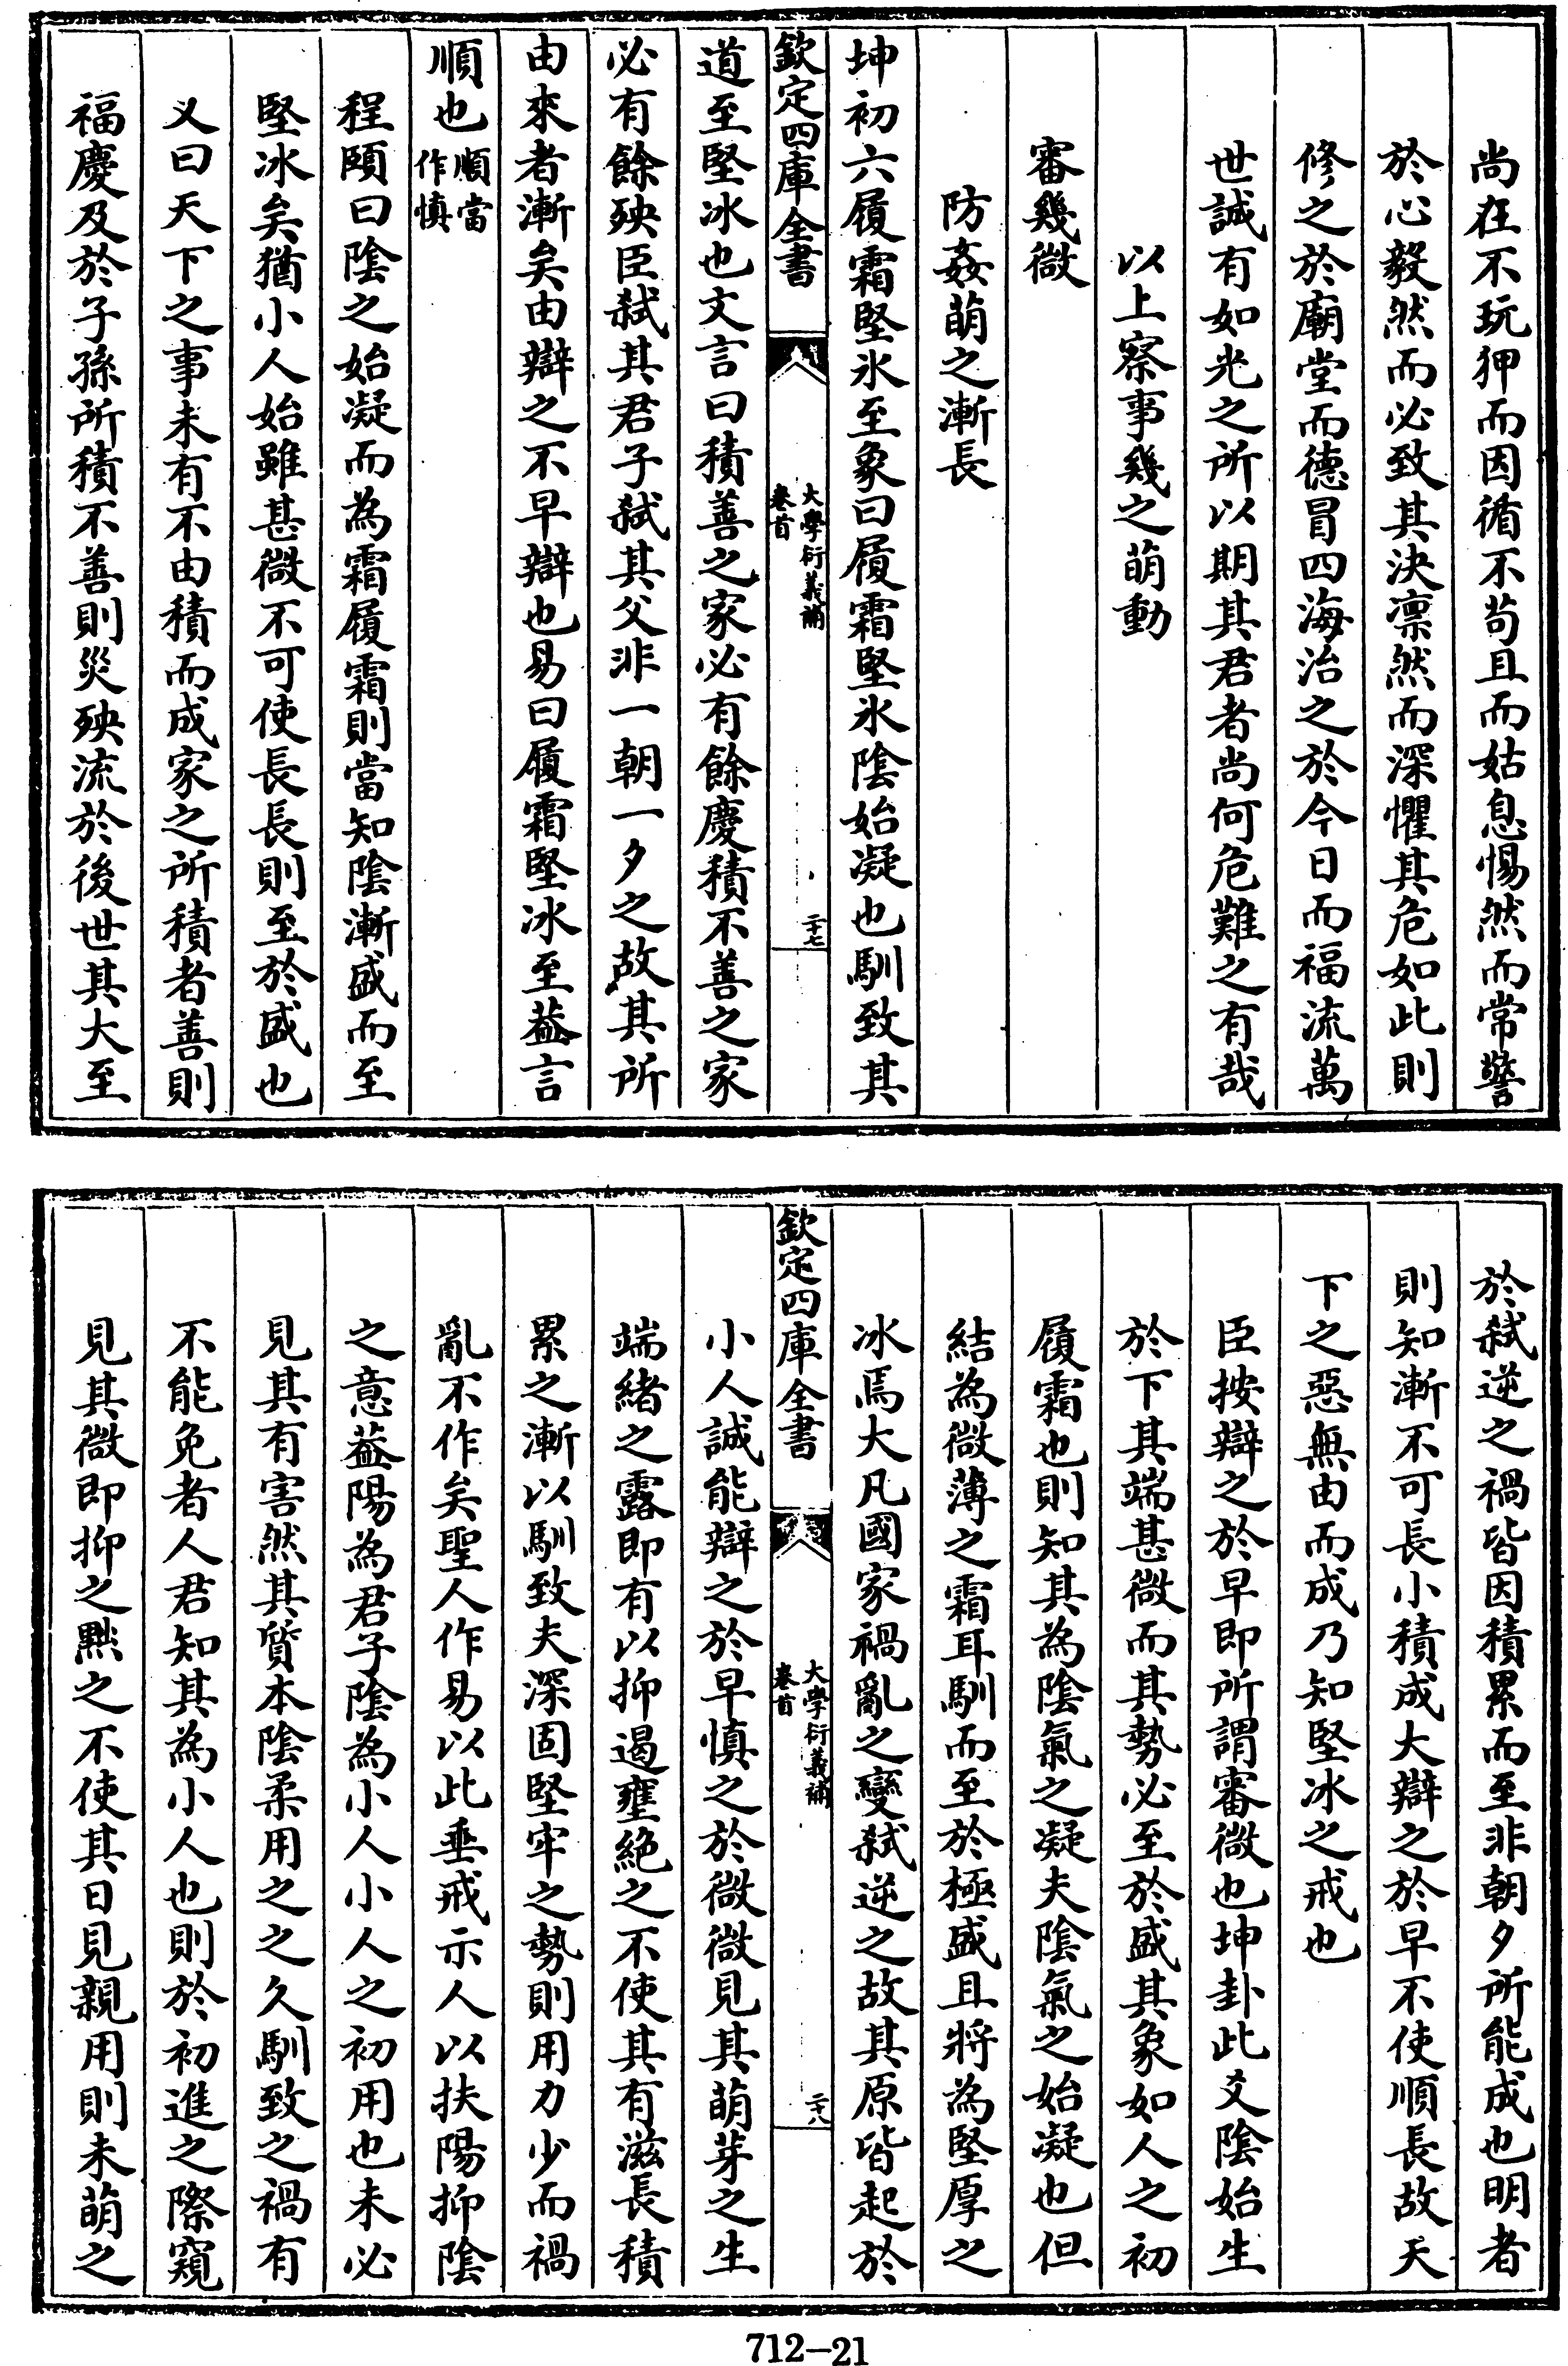 尚在不玩狎而因循不苟且而姑息惕然而常警
於心毅然而必致其決凛然而深懼其危如此則
修之於廟堂而德冒四海治之於今日而福流萬
世誠有如光之所以期其君者尚何危難之有哉
以上察事幾之萌動
審幾微
防姦萌之漸長
坤初六履霜堅氷至象曰履霜堅氷陰始凝也馴致其
欽定四庫全書
大學衍義補
卷首
二十七
道至堅冰也文言曰積善之家必有餘慶積不善之家
必有餘殃臣弑其君子弑其父非一朝一夕之故其所
由來者漸矣由辯之不早辯也易曰履霜堅冰至葢言
順也順當
作慎
程頤曰陰之始凝而為霜履霜則當知陰漸盛而至
堅冰矣猶小人始雖甚微不可使長長則至於盛也
又曰天下之事未有不由積而成家之所積者善則
福慶及於子孫所積不善則災殃流於後世其大至
於弑逆之禍皆因積累而至非朝夕所能成也明者
則知漸不可長小積成大辯之於早不使順長故天
下之惡無由而成乃知堅冰之戒也
臣按辯之於早即所謂審微也坤卦此爻陰始生
於下其端甚微而其勢必至於盛其象如人之初
履霜也則知其為陰氣之凝夫陰氣之始凝也但
結為微薄之霜耳馴而至於極盛且將為堅厚之
冰焉大凡國家禍亂之變弑逆之故其原皆起於
欽定四庫全書
大學衍義補
卷首
二十八
小人誠能辯之於早慎之於微微見其萌芽之生
端緒之露即有以抑遏壅絶之不使其有滋長積
累之漸以馴致夫深固堅牢之勢則用力少而禍
亂不作矣聖人作易以此垂戒示人以扶陽抑陰
之意葢陽為君子陰為小人小人之初用也未必
見其有害然其質本陰柔用之之久馴致之禍有
不能免者人君知其為小人也則於初進之際窺
見其微即抑之黙之不使其日見親用則未萌之
712-21